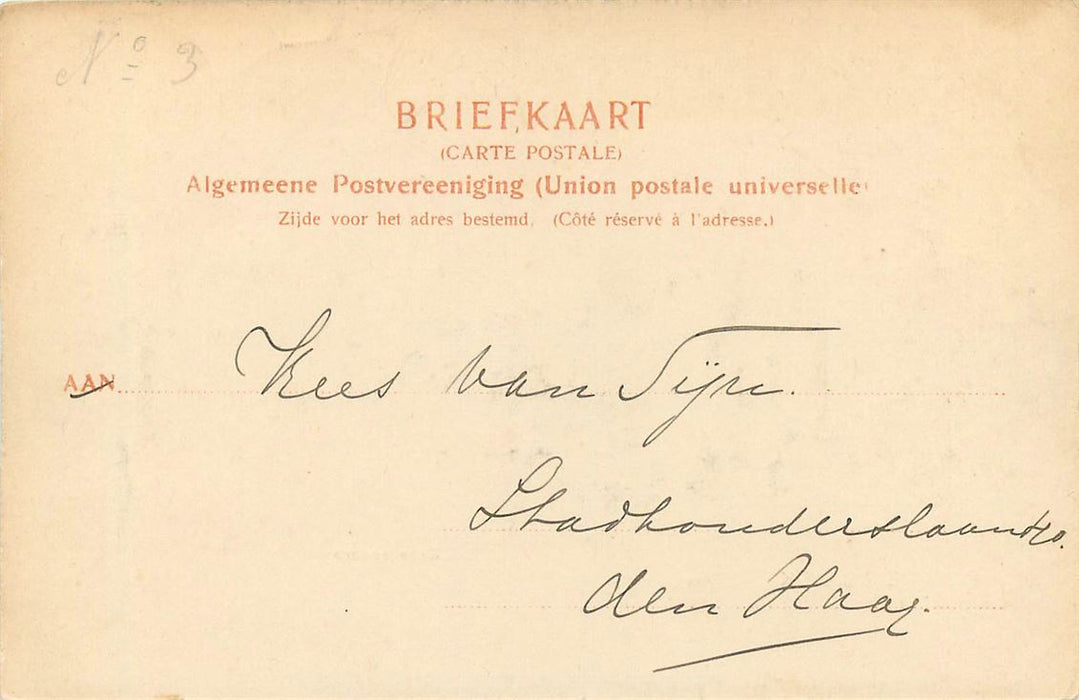 Nº 3
BRIEFKAART
(CARTE POSTALE)
Algemeene Postvereeniging (Union postale universelle)
Zijde voor het adres bestemd. (Côté réservé à l'adresse.)
AAN Kees van Tijn.
Stadhouderslaan
den Haag.